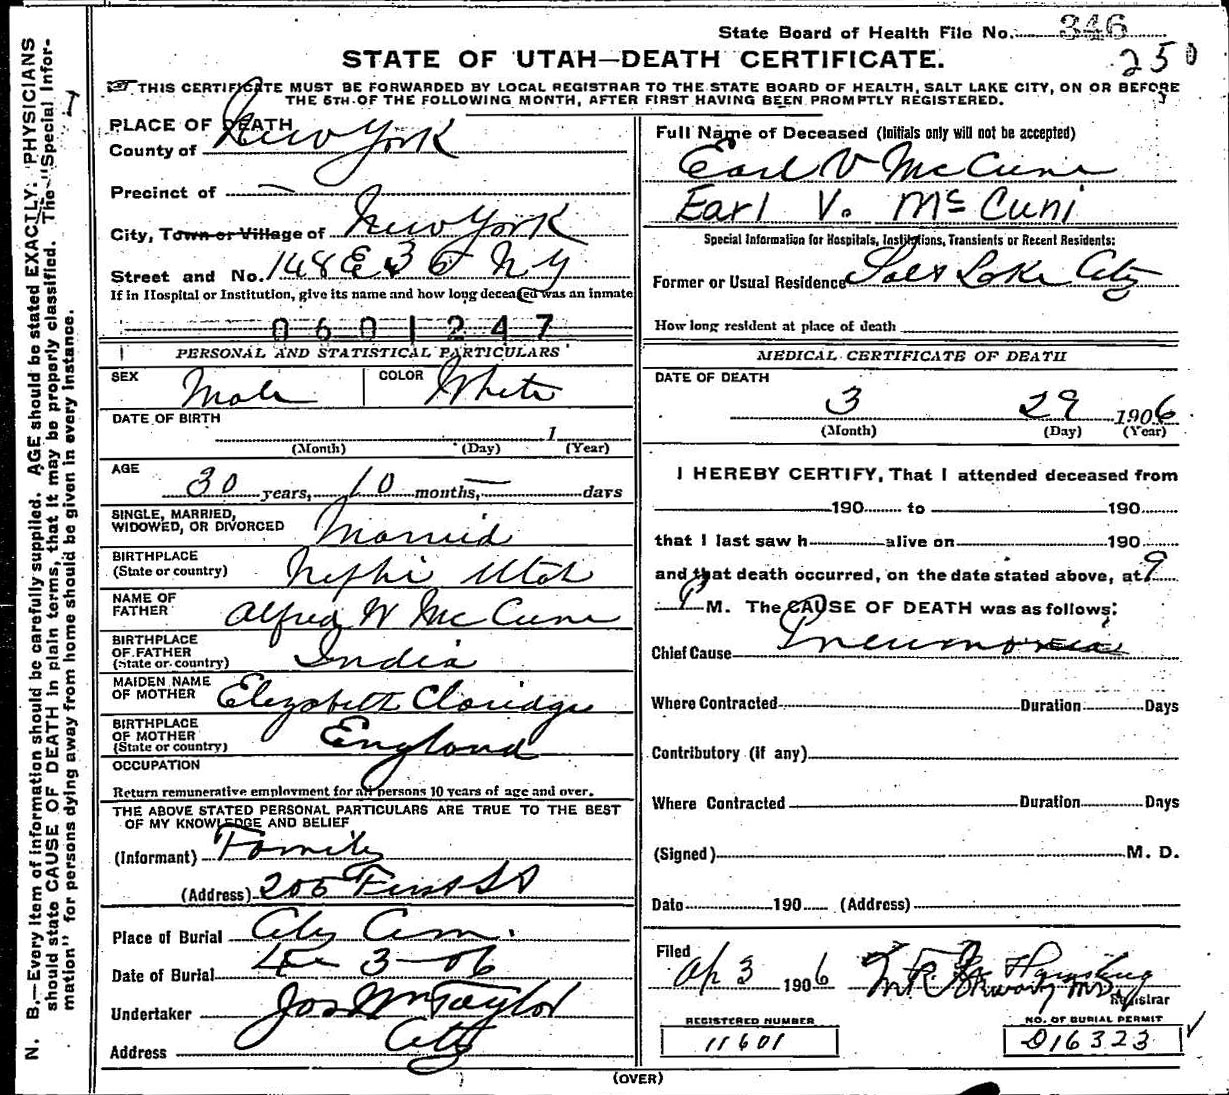 State Board of Health File No. 346
250
STATE OF UTAH—DEATH CERTIFICATE.
THIS CERTIFICATE MUST BE FORWARDED BY LOCAL REGISTRAR TO THE STATE BOARD OF HEALTH, SALT LAKE CITY, ON OR BEFORE
THE 5TH OF THE FOLLOWING MONTH, AFTER FIRST HAVING BEEN PROMPTLY REGISTERED.
N. B.—Every item of information should be carefully supplied. AGE should be stated EXACTLY. PHYSICIANS
should state CAUSE OF DEATH in plain terms, that it may be properly classified. The "Special Infor-
mation" for persons dying away from home should be given in every instance.
PLACE OF DEATH
County of New York
Precinct of —
City, Town or Village of New York
Street and No. 148 E 36 N Y
If in Hospital or Institution, give its name and how long deceased was an inmate
0601247
PERSONAL AND STATISTICAL PARTICULARS
SEX Male COLOR White
DATE OF BIRTH
1
(Month) (Day) (Year)
AGE
30 years, 10 months, — days
SINGLE, MARRIED,
WIDOWED, OR DIVORCED Married
BIRTHPLACE
(State or country) Nephi Utah
NAME OF
FATHER Alfred W McCune
BIRTHPLACE
OF FATHER
(State or country) India
MAIDEN NAME
OF MOTHER Elizabeth Claridge
BIRTHPLACE
OF MOTHER
(State or country) England
OCCUPATION
Return remunerative employment for all persons 10 years of age and over.
THE ABOVE STATED PERSONAL PARTICULARS ARE TRUE TO THE BEST
OF MY KNOWLEDGE AND BELIEF
(Informant) Family
(Address) 206 First St
Place of Burial City Cem.
Date of Burial 3-06
Undertaker Jos Wm Taylor
Address City
Full Name of Deceased (Initials only will not be accepted)
Earl V McCune
Earl V. McCuni
Special Information for Hospitals, Institutions, Transients or Recent Residents:
Former or Usual Residence Salt Lake City
How long resident at place of death
MEDICAL CERTIFICATE OF DEATH
DATE OF DEATH
3 29 1906
(Month) (Day) (Year)
I HEREBY CERTIFY, That I attended deceased from
190 to 190
that I last saw h alive on 190
and that death occurred, on the date stated above, at 9
P M. The CAUSE OF DEATH was as follows:
Chief Cause Pneumonia
Where Contracted Duration Days
Contributory (if any)
Where Contracted Duration Days
(Signed) M. D.
Date 190 (Address)
Filed
Ap 3 1906
Registrar
REGISTERED NUMBER
11601
NO. OF BURIAL PERMIT
D16323
(OVER)